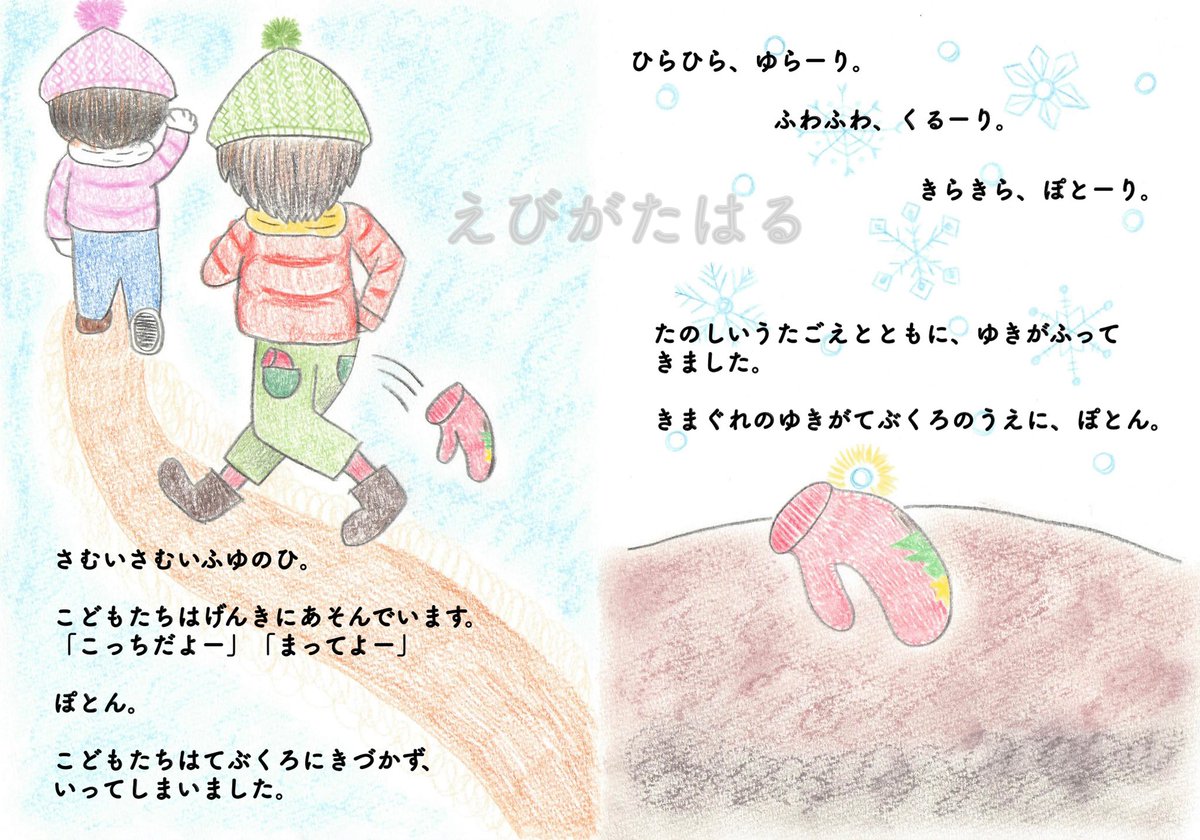 さむいさむいふゆのひ。
こどもたちはげんきにあそんでいます。
「こっちだよー」「まってよー」
ぽとん。
こどもたちはてぶくろにきづかず、
いってしまいました。
えびがたはる
ひらひら、ゆらーり。
ふわふわ、くるーり。
きらきら、ぽとーり。
たのしいうたごえとともに、ゆきがふって
きました。
きまぐれのゆきがてぶくろのうえに、ぽとん。